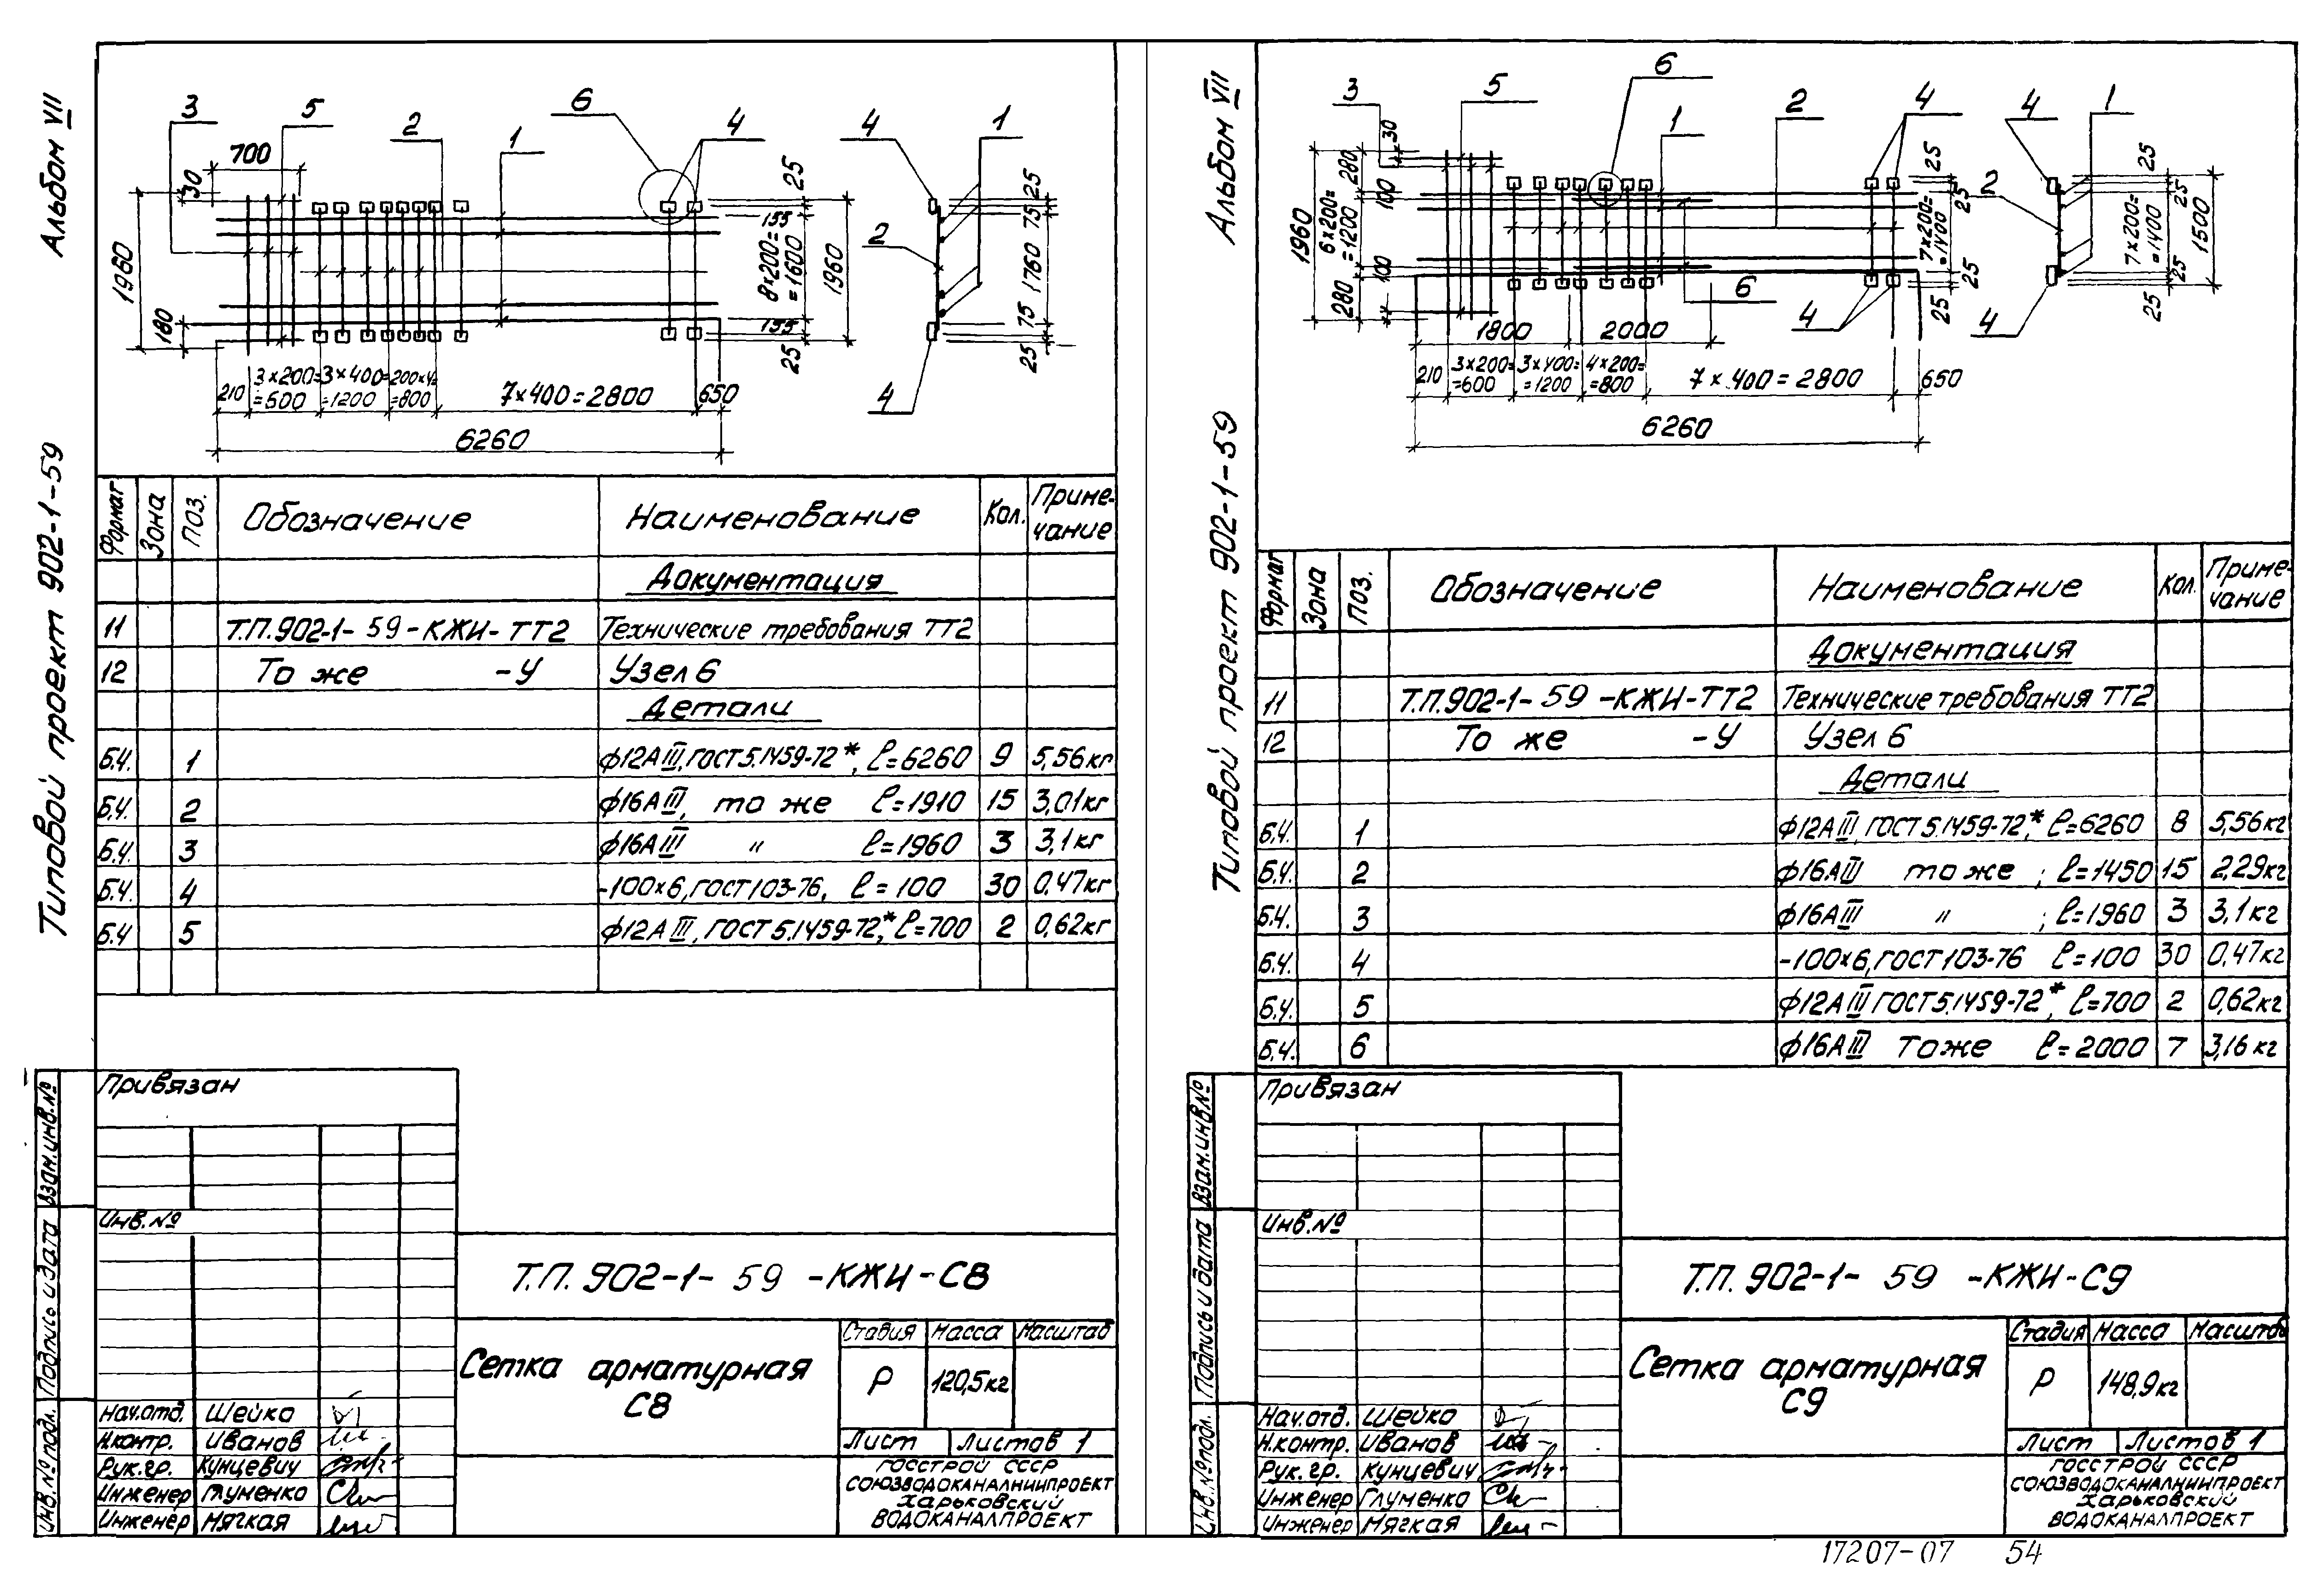 Альбом VII
Типовой проект 902-1-59
3
5
2
1
6
4
4
1
2
4
700
30
1960
180
210
3×200=
=600
3×400=
=1200
200×4=
=800
7×400=2800
650
6260
25
155
8×200=
=1600
155
25
1960
25
75
1760
75
25
Формат
Зона
Поз.
Обозначение
Наименование
Кол.
Приме-
чание
Документация
11 Т.П.902-1-59-КЖИ-ТТ2 Технические требования ТТ2
12 То же -У Узел 6
Детали
Б.Ч. 1 ф12АIII, ГОСТ 5.1459-72*, ℓ=6260 9 5,56кг
Б.Ч. 2 ф16АIII, то же ℓ=1910 15 3,01кг
Б.Ч. 3 ф16АIII " ℓ=1960 3 3,1кг
Б.Ч. 4 -100×6, ГОСТ 103-76, ℓ=100 30 0,47кг
Б.Ч 5 ф12АIII, ГОСТ 5.1459-72*, ℓ=700 2 0,62кг
Привязан
Инв.№
Взам.инв.№
Подпись и дата
Инв.№ подл.
Нач.отд. Шейко
Н.контр. Иванов
Рук.гр. Кунцевич
Инженер Глуменко
Инженер Мягкая
Т.П. 902-1-59-КЖИ-С8
Сетка арматурная
С8
Стадия Масса Масштаб
Р 120,5кг
Лист Листов 1
ГОССТРОЙ СССР
СОЮЗВОДОКАНАЛНИИПРОЕКТ
Харьковский
ВОДОКАНАЛПРОЕКТ
Альбом VII
Типовой проект 902-1-59
3
5
6
1
2
4
4
1
2
6
4
4
30
280
100
1960
6×200=
=1200
100
280
1800
2000
210
3×200=
=600
3×400=
=1200
4×200=
=800
7×400=2800
650
6260
25
25
7×200=
=1400
25
25
25
25
7×200=
=1400
1500
25
25
Формат
Зона
Поз.
Обозначение
Наименование
Кол.
Приме-
чание
Документация
11 Т.П.902-1-59-КЖИ-ТТ2 Технические требования ТТ2
12 То же -У Узел 6
Детали
Б.Ч. 1 ф12АIII, ГОСТ 5.1459-72,* ℓ=6260 8 5,56кг
Б.Ч. 2 ф16АIII то же ; ℓ=1450 15 2,29кг
Б.Ч. 3 ф16АIII " ; ℓ=1960 3 3,1кг
Б.Ч. 4 -100×6, ГОСТ 103-76 ℓ=100 30 0,47кг
Б.Ч. 5 ф12АIII ГОСТ 5.1459-72* ℓ=700 2 0,62кг
Б.Ч. 6 ф16АIII То же ℓ=2000 7 3,16кг
Привязан
Инв.№
Взам.инв№
Подпись и дата
Инв.№ подл.
Нач.отд. Шейко
Н.контр. Иванов
Рук.гр. Кунцевич
Инженер Глуменко
Инженер Мягкая
Т.П. 902-1-59-КЖИ-С9
Сетка арматурная
С9
Стадия Масса Масштаб
Р 148,9кг
Лист Листов 1
ГОССТРОЙ СССР
СОЮЗВОДОКАНАЛНИИПРОЕКТ
Харьковский
ВОДОКАНАЛПРОЕКТ
17207-07 54